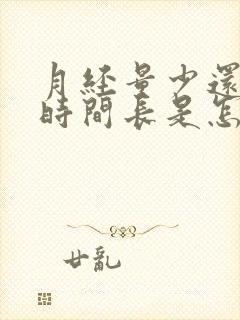 月経量少還
時間長是怎
廿亂